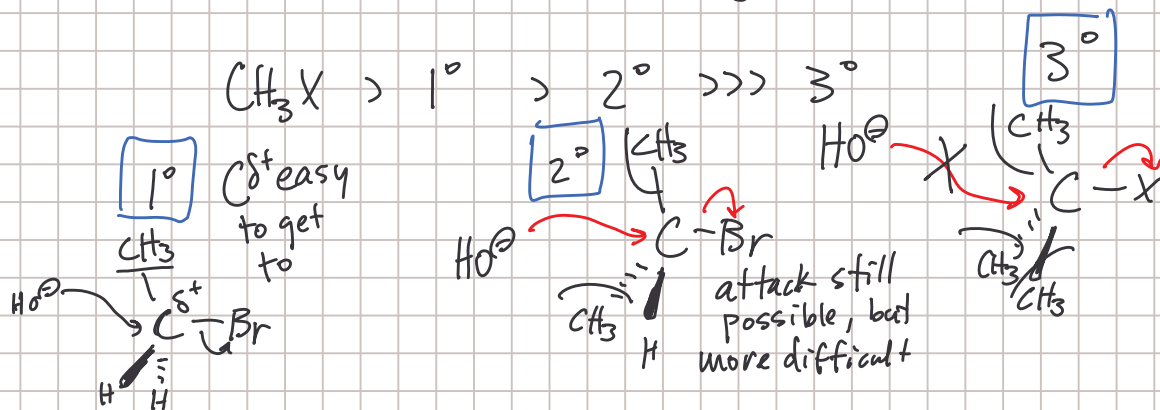 CH₃X > 1° > 2° >>> 3°
1°
C^δ+ easy
to get
to
CH₃
HO⊖
C^δ+ – Br
H H
2°
CH₃
HO⊖
C – Br
CH₃
H
attack still
possible, but
more difficult
3°
CH₃
HO⊖ X
C – X
CH₃
CH₃